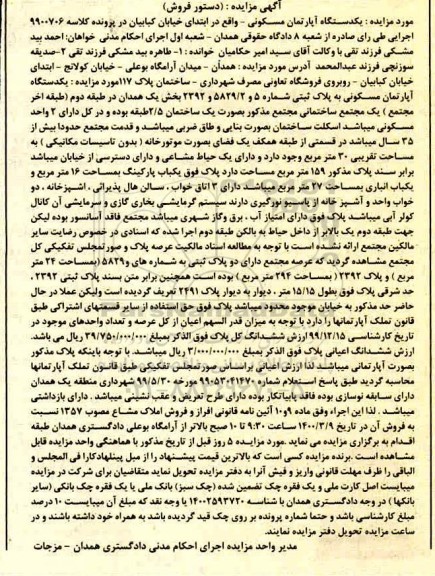 آگهی مزایده : (دستور فروش)
مورد مزایده : یکدستگاه آپارتمان مسکونی - واقع در ابتدای خیابان کبابیان در پرونده کلاسه ۹۹۰۰۷۰۶
اجرایی طی رای صادره از شعبه ۸ دادگاه حقوقی همدان - شعبه اول اجرای احکام مدنی خواهان: احمد بید
مشکی فرزند تقی با وکالت آقای سید امیر حکامیان خوانده : ۱- طاهره بید مشکی فرزند تقی ۲-صدیقه
سوزنچی فرزند عبدالمحمد آدرس مورد مزایده : همدان - میدان آرامگاه بوعلی - خیابان کولانج - ابتدای
خیابان کبابیان - روبروی فروشگاه تعاونی مصرف شهرداری - ساختمان پلاک ۱۱۷مورد مزایده : یکدستگاه
آپارتمان مسکونی به پلاک ثبتی شماره ۵ و ۵۸۲۹/۲ و ۲۳۹۲ بخش یک همدان در طبقه دوم (طبقه اخر
مجتمع ) یک مجتمع ساختمانی مجتمع مذکور بصورت یک ساختمان ۲/۵طبقه بوده و در کل دارای ۲ واحد
مسکونی میباشد اسکلت ساختمان بصورت بنایی و طاق ضربی میباشد و قدمت مجتمع حدودا بیش از
۳۵ سال میباشد در قسمتی از طبقه همکف یک فضای بصورت موتورخانه ( بدون تاسیسات مکانیکی ) به
مساحت تقریبی ۳۰ متر مربع وجود دارد و دارای یک حیاط مشاعی و دارای دسترسی از خیابان میباشد
برابر سند پلاک مذکور ۱۵۹ متر مربع مساحت دارد پلاک فوق یکباب پارکینگ بمساحت ۱۶ متر مربع و
یکباب انباری بمساحت ۲۷ متر مربع میباشد دارای ۳ اتاق خواب ، سالن هال پذیرائی ، اشپزخانه ، دو
خواب واحد و آشپز خانه از پاسیو نورگیری دارند سیستم گرمایشی بخاری گازی و سرمایشی آن کانال
کولر آبی میباشد پلاک فوق دارای امتیاز آب ، برق وگاز شهری میباشد مجتمع فاقد آسانسور بوده لیکن
جهت طبقه دوم یک بالابر از داخل حیاط به بالکن طبقه دوم اجرا شده که اسنادی در خصوص رضایت سایر
مالکین مجتمع ارائه نشده است با توجه به مطالعه اسناد مالکیت عرصه پلاک و صورتمجلس تفکیکی کل
مجتمع مشاهده گردید که عرصه مجتمع دارای دو پلاک ثبتی به شماره های و۵۸۲۹ (بمساحت ۲۴ متر
مربع ) و پلاک ۲۳۹۲ ( بمساحت ۲۹۴ متر مربع ) بوده است همچنین برابر متن بسند پلاک ثبتی ۲۳۹۲ ،
حد شرقی پلاک فوق بطول ۱۵/۱۵ متر ، دیوار به دیوار پلاک ۲۴۹۱ تعریف گردیده است ولیکن عملا در حال
حاضر حد مذکور به خیابان موجود محدود میباشد پلاک فوق حق استفاده از سایر قسمتهای اشتراکی طبق
قانون تملک آپارتمانها را دارد با توجه به میزان قدر السهم اعیان از کل عرصه و تعداد واحدهای موجود در
تاریخ کارشناسی ۹۹/۱۲/۱۵ ارزش ششدانگ کل پلاک فوق الذکر بمبلغ ۳۹/۷۵۰/۰۰۰/۰۰۰ ریال می باشد.
ارزش ششدانگ اعیانی پلاک فوق الذکر بمبلغ ۳/۰۰۰/۰۰۰/۰۰۰ ریال میباشد. با توجه باینکه پلاک مذکور
بصورت آپارتمانی میباشد لذا ارزش اعیانی براساس صورتمجلس تفکیکی طبق قانون تملک آپارتمانها
محاسبه گردید طبق پاسخ استعلام شماره ۹۹۰۵۳۰۴۱۴۷۰ مورخه ۹۹/۵/۳۰ شهرداری منطقه یک همدان
دارای سابقه نوسازی بوده فاقد پایانکار بوده دارای طرح تعریض و عقب نشینی میباشد . دارای بازداشتی
میباشد . لذا این اجراء وفق ماده ۹و۱۰ آئین نامه قانونی افراز و فروش املاک مشاع مصوب ۱۳۵۷ نسبت
به فروش آن در تاریخ ۱۴۰۰/۳/۹ ساعت ۹:۳۰ تا ۱۰ صبح بالاتر از آرامگاه بوعلی دادگستری همدان طبقه
اقدام به برگزاری مزایده می نماید .مورد مزایده ۵ روز قبل از تاریخ مذکور با هماهنگی واحد مزایده قابل
مشاهده است .برنده مزایده کسی است که بالاترین قیمت پیشنهاد را از مبل پینلهادکارا فی المجلس و
الباقی را ظرف مهلت قانونی واریز و فیش آنرا به دفتر مزایده تحویل نماید متقاضیان برای شرکت در مزایده
میبایست اصل کارت ملی و یک فقره چک تضمین شده (چک سبز) بانک ملی یا یک فقره چک بانکی (سایر
بانکها ) در وجه دادگستری همدان با شناسه ۱۴۰۰۲۵۹۳۷۲۰ یا وجه نقد که مبلغ آن میبایست ۱۰ درصد
مبلغ کارشناسی باشد و حتما شماره پرونده بر روی چک قید گردیده باشد به همراه خود داشته باشند و در
ساعت مزایده تحویل دفتر مزایده نمایند.
مدیر واحد مزایده اجرای احکام مدنی دادگستری همدان - مزجات